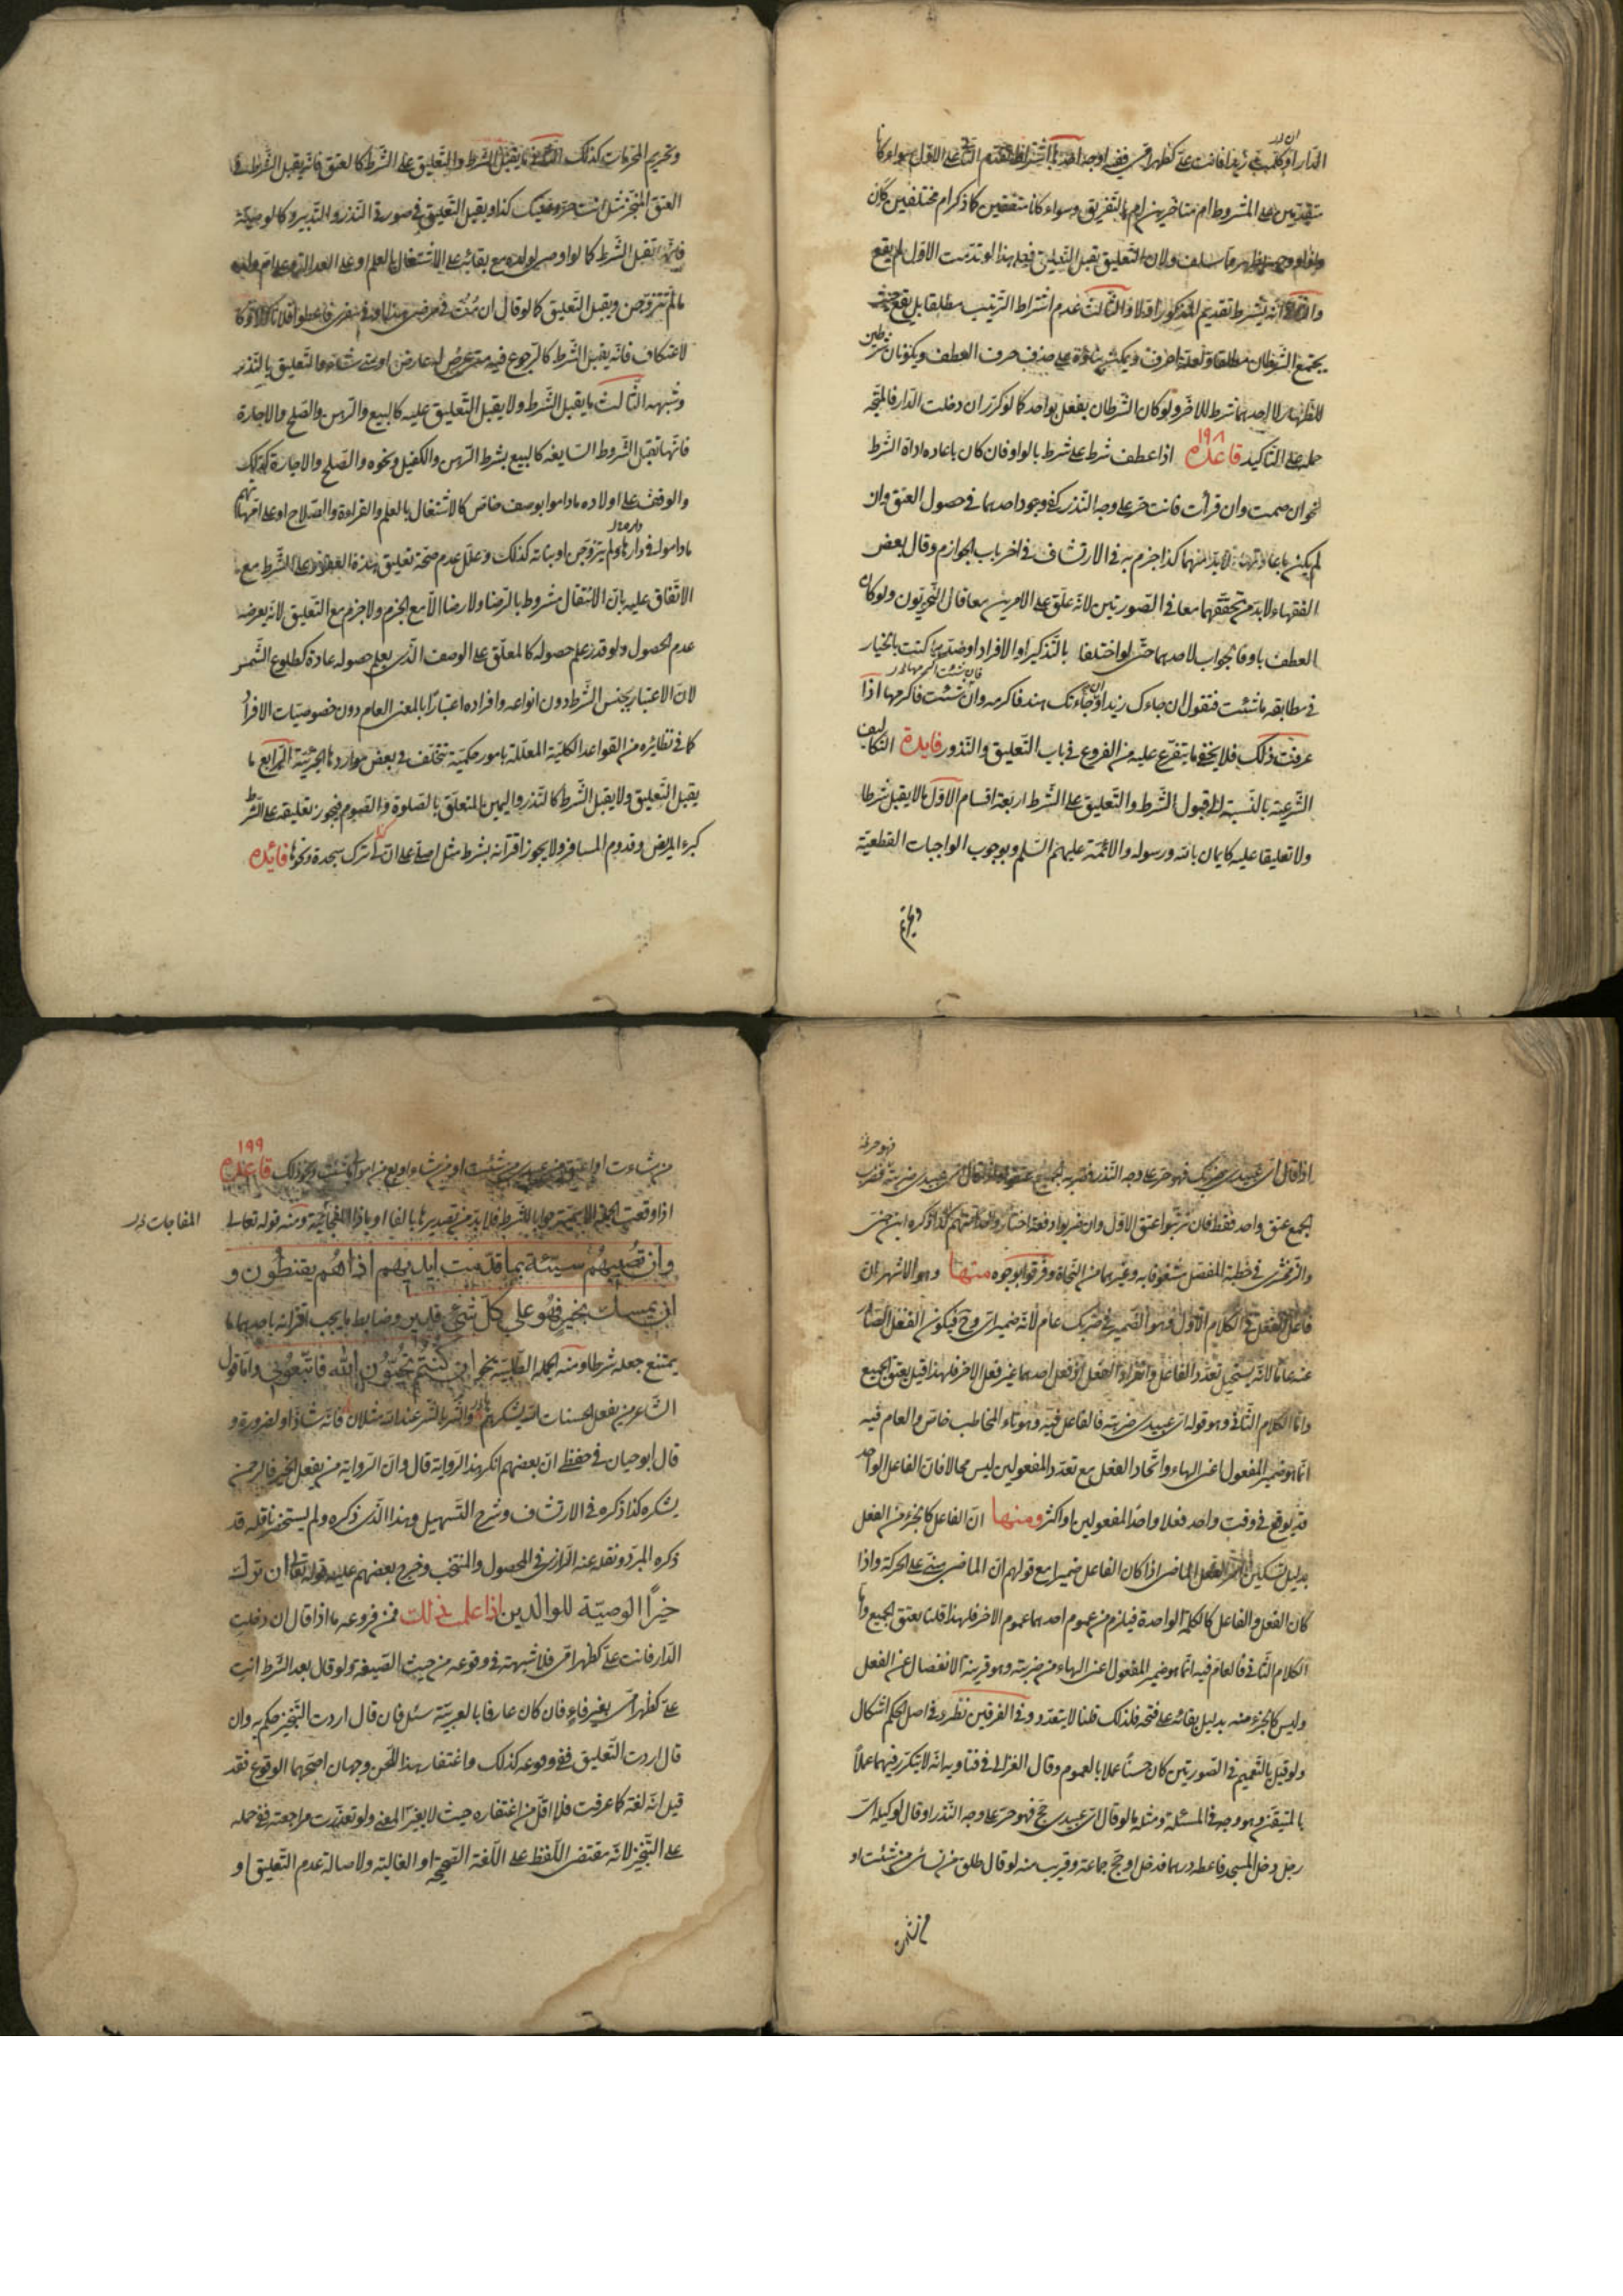 الدار او كلمت زيدا فانت علي كظهر امي ففيه اوجه احدها اشتراط تقدم الثاني على الاول سواء كانا
متقدمين على المشروط ام متاخرين ام بالتفريق وسواء كانا متفقين كما ذكر ام مختلفين كان
ولان التعليق يقبل التعليق فعلى هذا لو تقدمت الاول لم يقع
والثاني انه يشترط تقديم المذكور اولا والثالث عدم اشتراط الترتيب مطلقا بل يقع حيث
يجتمع الشرطان مطلقا حذف حرف العطف ويكونان شرطين
للظهار لا احدهما شرط للاخر ولو كان الشرطان بفعل واحد كما لو كرر ان دخلت الدار فالمتجه
حمله على التاكيد قاعدة ١٩٨ اذا عطف شرط على شرط بالواو فان كان باعاده اداة الشرط
نحو ان صمت وان قرات فانت حر على وجه النذر كفى وجود احدهما في حصول العتق وان
لم يكن باعادتها فلابد منهما كذا جزم به في الارتشاف في اخر باب الجوازم وقال بعض
الفقهاء لابد من تحققهما معا في الصورتين لانه علق على الامرين معا قال النحويون ولو كان
العطف باو فالجواب لاحدهما حتى لو اختلفا بالتذكير او الافراد او ضدهما كنت بالخيار
في مطابقه ما شئت فتقول ان جاءك زيد او جاءتك هند فاكرمه وان شئت فاكرمها اذا
عرفت ذلك فلا يخفى ما يتفرع عليه من الفروع في باب التعليق والنذور فايدة التكاليف
الشرعيه بالنسبة الى قبول الشرط والتعليق على الشرط اربعة اقسام الاول ما لا يقبل شرطا
ولا تعليقا عليه كايمان بالله ورسوله والائمة عليهم السلم وبوجوب الواجبات القطعية
وتحريم
وتحريم المحرمات كذلك الثاني ما يقبل الشرط والتعليق على الشرط كالعتق فانه يقبل الشرط في
العتق المنجز مثل انت حر وعليك كذا ويقبل التعليق في صورة النذر والتدبير وكالوصية
فانها تقبل الشرط كما لو اوصى لولده مع بقائه على الاشتغال بالعلم او على العدالة او على ام ولده
ما لم تتزوجن ويقبل التعليق كما لو قال ان مت في مرضي هذا او في سفري فاعطوا فلانا كذا وكا
لاعتكاف فانه يقبل الشرط كالرجوع فيه متى عرض له عارض او متى شاء والتعليق بالنذر
وشبهه الثالث ما يقبل الشرط ولا يقبل التعليق عليه كالبيع والرهن والصلح والاجارة
فانها تقبل الشروط السايغه كالبيع بشرط الرهن والكفيل ونحوه والصلح والاجارة كذلك
والوقف على اولاده ما داموا بوصف خاص كالاشتغال بالعلم والقراءة والصلاح او على امهاتهم
ما داموا في داره ولم يتزوجن او بناته كذلك وعلل عدم صحة تعليق هذه العقود على الشرط مع
الاتفاق عليه بان الانتقال مشروط بالرضا ولا رضا الا مع الجزم ولا جزم مع التعليق لانه يعرضه
عدم الحصول ولو قدر علم حصوله كالمعلق على الوصف الذي يعلم حصوله عادة كطلوع الشمس
لان الاعتبار بجنس الشرط دون انواعه وافراده اعتبارا بالمعنى العام دون خصوصيات الافراد
كما في نظائره من القواعد الكلية المعللة بامور حكمية تتخلف في بعض مواردها الجزئية الرابع ما
يقبل التعليق ولا يقبل الشرط كالنذر واليمين المتعلق بالصلوة والصوم فيجوز تعليقه على الشرط
كبرء المريض وقدوم المسافر ولا يجوز اقترانه بشرط مثل اصلي على ان لي ترك سجدة ونحوها فائدة
اذا قال اي عبيدي ضربك فهو حر على وجه النذر فضربه الجميع عتقوا ولو قال اي عبيدي ضربته فهو حر فضرب
الجميع عتق واحد فقط فان ترتبوا عتق الاول وان ضربوا دفعة اختار واحدا منهم كذا ذكره ابن جني
والزمخشري في خطبة المفصل شغوفا به وغيرهما من النحاة وفرقوا بوجوه منها وهو الاشهر ان
فاعل الفعل في الكلام الاول فهو الضمير في ضربك عام لانه ضمير اي وح فيكون الفعل الصادر
عنه عاما لانه يستحيل تعدد الفاعل وانفراد الفعل اذ فعل احدهما غير فعل الاخر فلهذا قيل بعتق الجميع
واما الكلام الثاني وهو قوله اي عبيدي ضربته فالفاعل فيه وهو تاء المخاطب خاص والعام فيه
انما هو ضمير المفعول اعني الهاء واتحاد الفعل مع تعدد المفعولين ليس محالا فان الفاعل الواحد
قد يوقع في وقت واحد فعلا واحدا لمفعولين او اكثر ومنها ان الفاعل كالجزء من الفعل
بدليل تسكين اخر الفعل الماضي اذا كان الفاعل ضميرا مع قولهم ان الماضي مبني على الحركة واذا
كان الفعل والفاعل كالكلمة الواحدة فيلزم من عموم احدهما عموم الاخر فلهذا قلنا بعتق الجميع واما
الكلام الثاني فالعام فيه انما هو ضمير المفعول اعني الهاء من ضربته وهو قرينة الانفصال عن الفعل
وليس كالجزء منه بدليل بقائه على فتحه فلذلك قلنا لا يتعدد وفي الفرقين نظر وفي اصل الحكم اشكال
ولو قيل بالتعميم في الصورتين كان حسنا عملا بالعموم وقال الغزالي في فتاويه انه لا يتكرر فيهما عملا
بالمتيقن وهو وجه في المسئلة ومثله ما لو قال اي عبيدي حج فهو حر على وجه النذر او قال لوكيله اي
رجل دخل المسجد فاعطه درهما فدخل او حج جماعة وقريب منه لو قال طلق من نسائي من شئت او
من شاءت
من شاءت او اعتق من عبيدي من شئت او من شاء او بع من اموالي ما شئت ونحو ذلك قاعدة ١٩٩
اذا وقعت الجملة الاسمية جوابا للشرط فلابد من تصديرها بالفاء او باذا الفجائية ومنه قوله تعالى
المفاجات
وان تصبهم سيئة بما قدمت ايديهم اذا هم يقنطون و
ان يمسسك بخير فهو على كل شيء قدير وضابط ما يجب اقترانه باحدهما ما
يمتنع جعله شرطا ومنه الجملة الطلبية نحو ان كنتم تحبون الله فاتبعوني واما قول
الشاعر من يفعل الحسنات الله يشكرها والشر بالشر عند الله مثلان فانه شاذ او لضرورة و
قال ابو حيان في حفظي ان بعضهم انكر هذا الرواية قال وان الرواية من يفعل الخير فالرحمن
يشكره كذا ذكره في الارتشاف وشرح التسهيل وهذا الذي ذكره ولم يستحضر ناقله قد
ذكره المبرد ونقله عنه الرازي في المحصول والمنتخب وخرج بعضهم عليه قوله تعالى ان ترك
خيرا الوصية للوالدين اذا علمت ذلك فمن فروعه ما اذا قال ان دخلت
الدار فانت علي كظهر امي فلا شبهة في وقوعه من حيث الصيغة ولو قال بعد الشرط انت
علي كظهر امي بغير فاء فان كان عارفا بالعربية سئل فان قال اردت التنجيز حكم به وان
قال اردت التعليق ففي وقوعه كذلك واغتفار هذا اللحن وجهان اصحهما الوقوع فقد
قيل انه لغة كما عرفت فلا اقل من اغتفاره حيث لا يغير المعنى ولو تعذرت مراجعته ففي حمله
على التنجيز لانه مقتضى اللفظ على اللغة الصحيحة او الغالبة ولاصالة عدم التعليق او